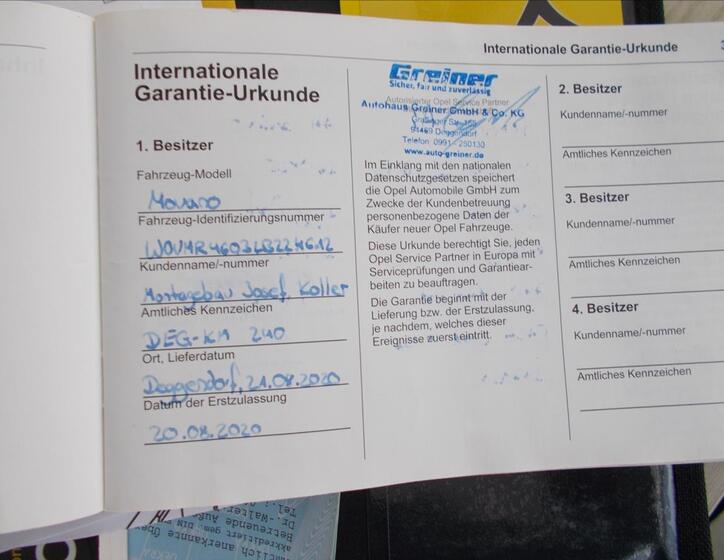 Internationale Garantie-Urkunde
Internationale
Garantie-Urkunde
1. Besitzer
Fahrzeug-Modell
Movano
Fahrzeug-Identifizierungsnummer
Kundenname/-nummer
Montagebau Josef Koller
Amtliches Kennzeichen
DEG-KM 240
Ort, Lieferdatum
Deggendorf, 21.08.2020
Datum der Erstzulassung
20.08.2020
Greiner
Sicher, fair und zuverlässig
Autorisierter Opel Service Partner
Autohaus Greiner GmbH & Co. KG
94469 Deggendorf
Telefon 0991 - 250130
www.auto-greiner.de
Im Einklang mit den nationalen
Datenschutzgesetzen speichert
die Opel Automobile GmbH zum
Zwecke der Kundenbetreuung
personenbezogene Daten der
Käufer neuer Opel Fahrzeuge.
Diese Urkunde berechtigt Sie, jeden
Opel Service Partner in Europa mit
Serviceprüfungen und Garantiear-
beiten zu beauftragen.
Die Garantie beginnt mit der
Lieferung bzw. der Erstzulassung,
je nachdem, welches dieser
Ereignisse zuerst eintritt.
2. Besitzer
Kundenname/-nummer
Amtliches Kennzeichen
3. Besitzer
Kundenname/-nummer
Amtliches Kennzeichen
4. Besitzer
Kundenname/-nummer
Amtliches Kennzeichen